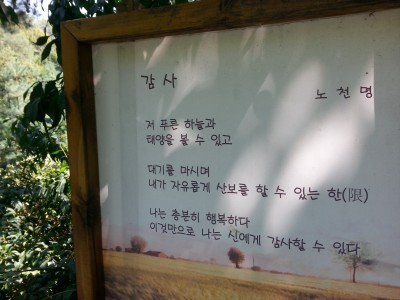 감사
노천명
저 푸른 하늘과
태양을 볼 수 있고
대기를 마시며
내가 자유롭게 산보를 할 수 있는 한(限)
나는 충분히 행복하다
이것만으로 나는 신에게 감사할 수 있다